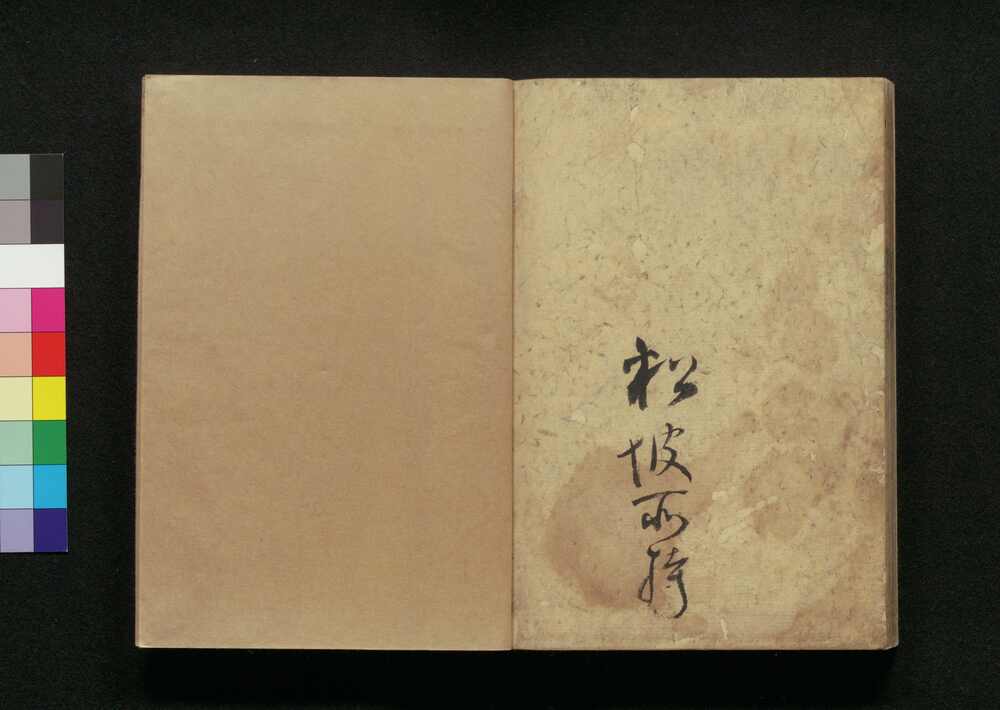 松坡所持